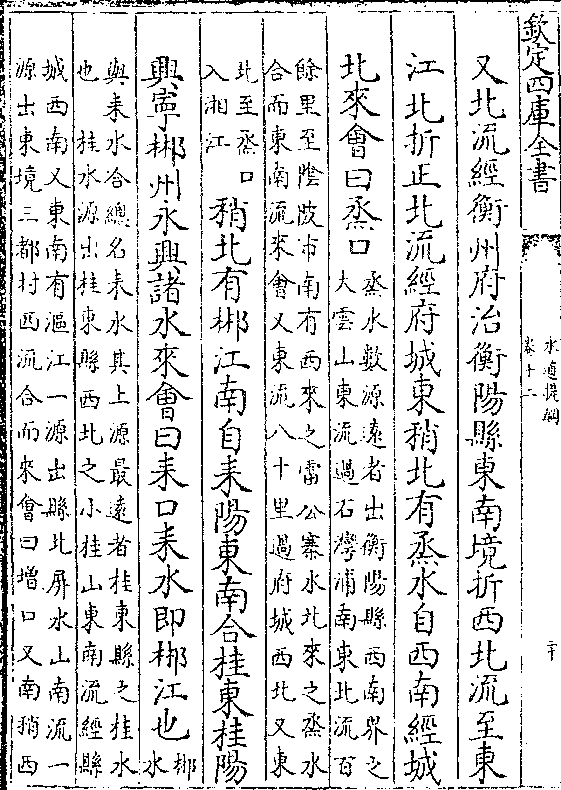 欽定四庫全書
水道提綱
卷十二
二十
又北流經衡州府治衡陽縣東南境折西北流至東
江北折正北流經府城東稍北有烝水自西南經城
北來會曰烝口
烝水數源遠者出衡陽縣西南界之
大雲山東流過石灣浦南東北流百
餘里至陰陂市南有西來之雷公寨水北來之烝水
合而東南流來會又東流八十里過府城西北又東
北至烝口
入湘江
稍北有郴江南自耒陽東南合桂東桂陽
興寧郴州永興諸水來會曰耒口耒水即郴江也
郴
水
與耒水合總名耒水其上源最遠者桂東縣之桂水
也　桂水源出桂東縣西北之小桂山東南流經縣
城西南又東南有漚江一源出縣北屏水山南流一
源出東境三都村西流合而來會曰增口又南稍西